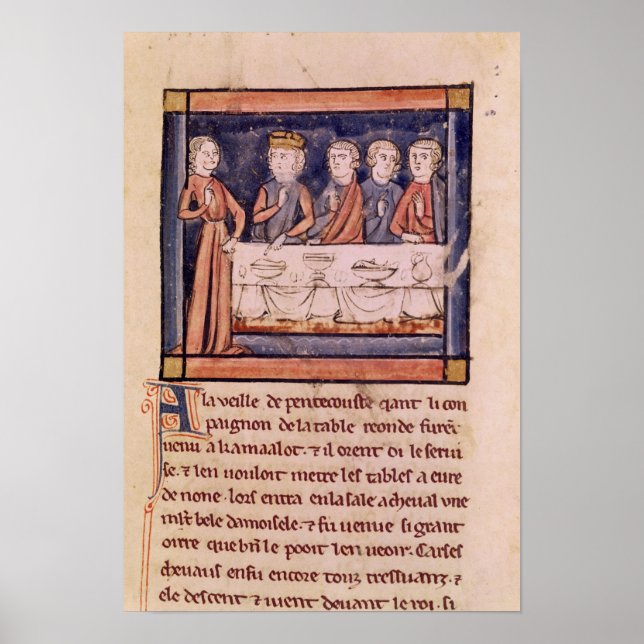 A la veille de pentecouste qant li con
paignon de la table reonde furēt
uenu a kamaalot ⁊ il orent oi le serui
se ⁊ len uouloit metre les tables a eure
de none. lors entra en la sale a cheual vne
ml't bele damoisele. ⁊ fu uenue si grant
oirre que bn̄ le pooit len ueoir. Car ses
cheuaus en fu encore touz tressuanz. ⁊
ele descent ⁊ uient deuant le roi. si